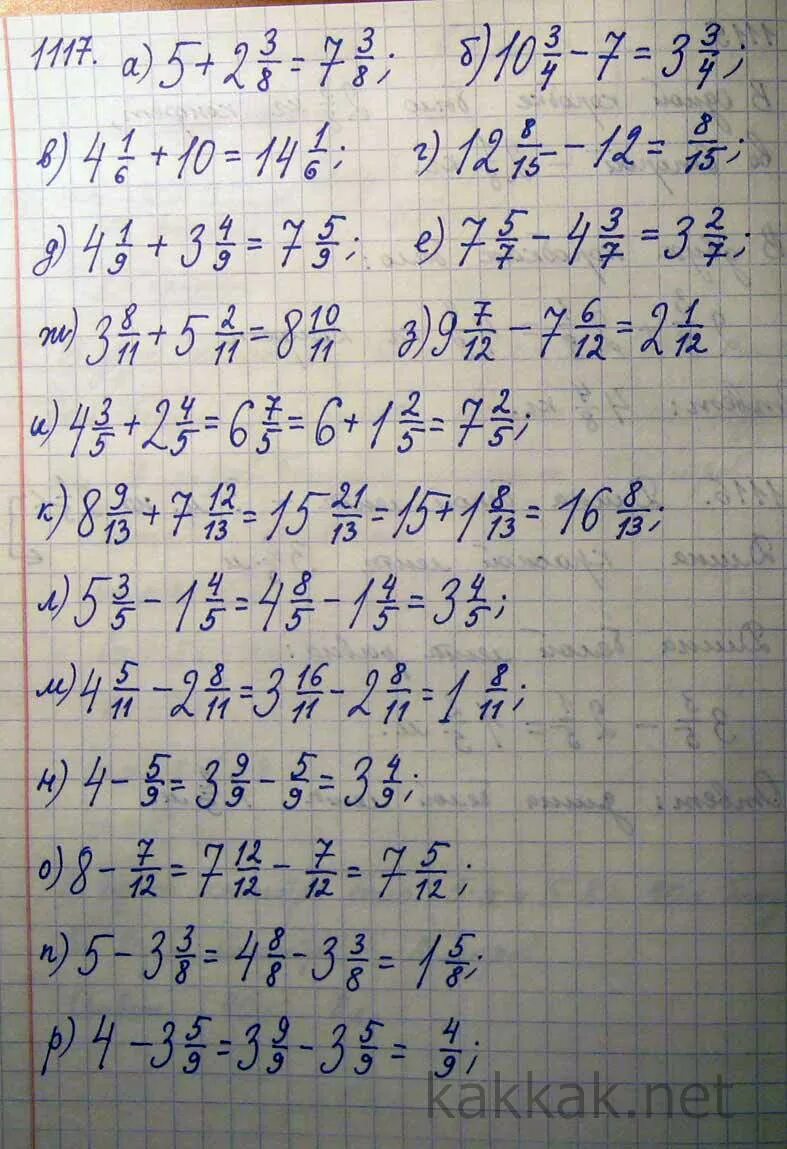 1117. а) 5 + 2 3/8 = 7 3/8; б) 10 3/4 - 7 = 3 3/4;
в) 4 1/6 + 10 = 14 1/6; г) 12 8/15 - 12 = 8/15;
д) 4 1/9 + 3 4/9 = 7 5/9; е) 7 5/7 - 4 3/7 = 3 2/7;
ж) 3 8/11 + 5 2/11 = 8 10/11 з) 9 7/12 - 7 6/12 = 2 1/12
и) 4 3/5 + 2 4/5 = 6 7/5 = 6 + 1 2/5 = 7 2/5;
к) 8 9/13 + 7 12/13 = 15 21/13 = 15 + 1 8/13 = 16 8/13;
л) 5 3/5 - 1 4/5 = 4 8/5 - 1 4/5 = 3 4/5;
м) 4 5/11 - 2 8/11 = 3 16/11 - 2 8/11 = 1 8/11;
н) 4 - 5/9 = 3 9/9 - 5/9 = 3 4/9;
о) 8 - 7/12 = 7 12/12 - 7/12 = 7 5/12;
п) 5 - 3 3/8 = 4 8/8 - 3 3/8 = 1 5/8;
р) 4 - 3 5/9 = 3 9/9 - 3 5/9 = 4/9;
kakkak.net